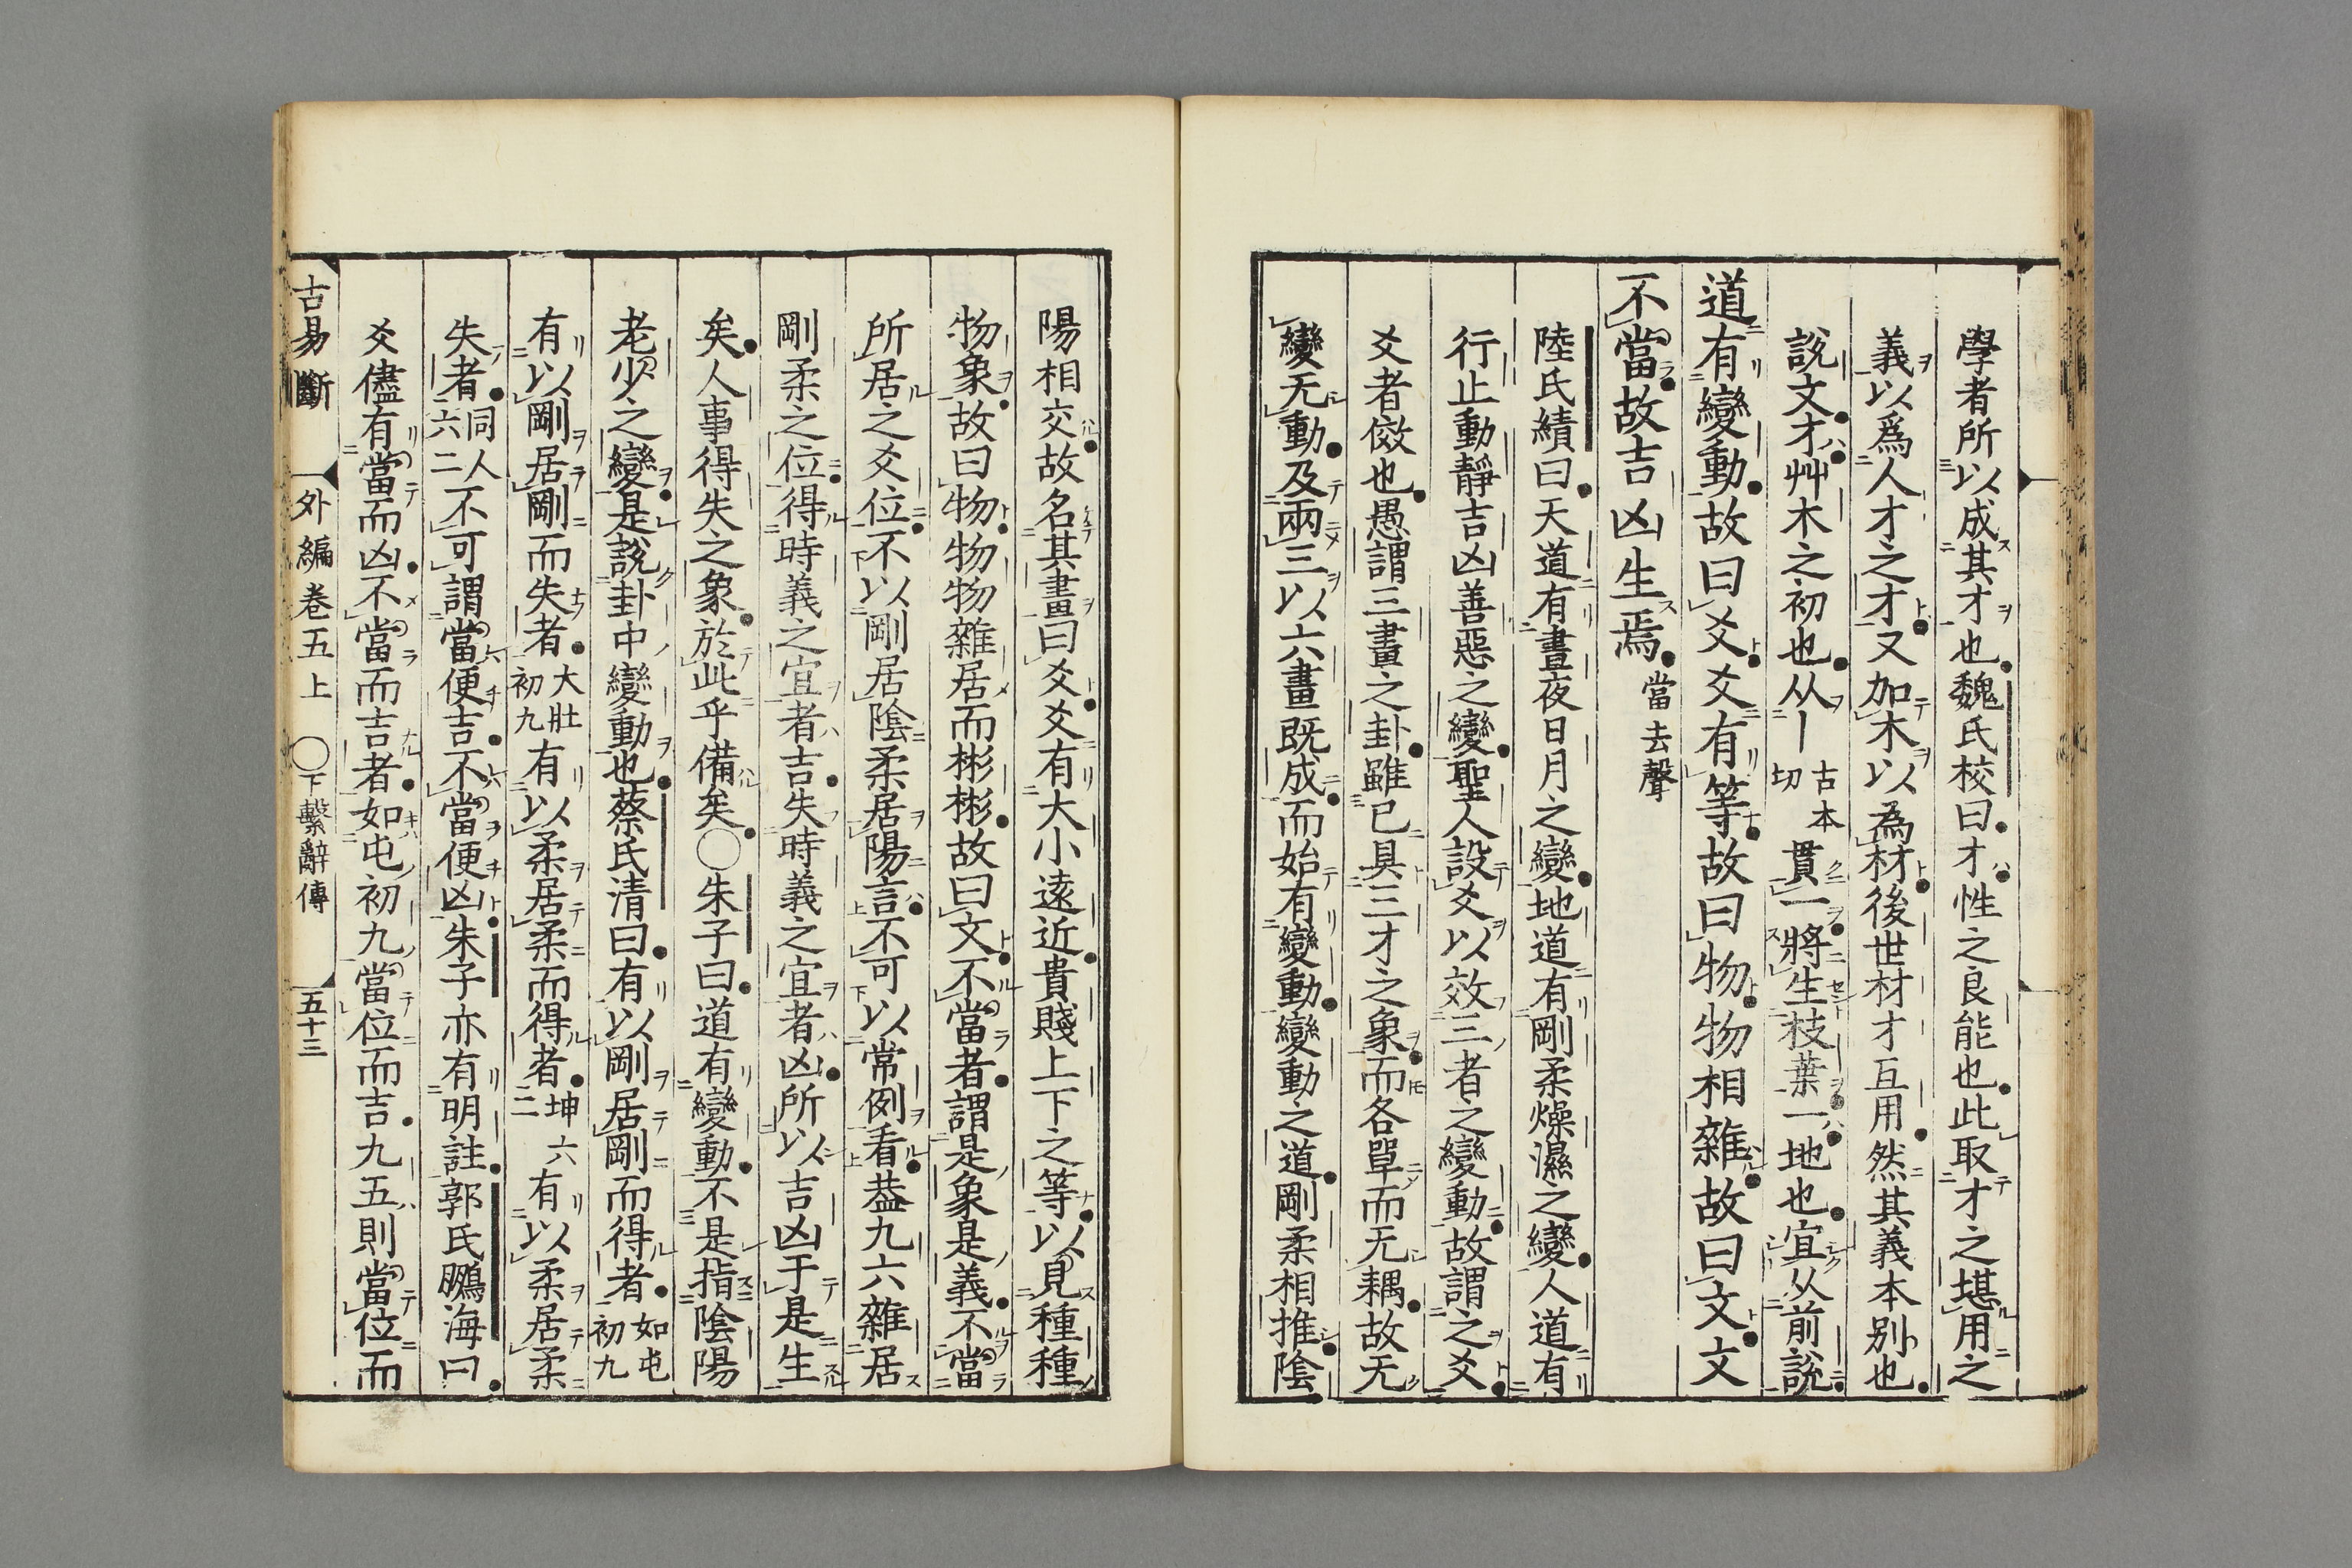 學者所以成其才也魏氏校曰才性之良能也此取才之堪用之
義以爲人才之才又加木以為材後世材才互用然其義本別也
說文才艸木之初也从丨古本切貫一將生枝葉一地也宜从前説
道有變動故曰爻爻有等故曰物物相雜故曰文文
不當故吉凶生焉當去聲
陸氏績曰天道有晝夜日月之變地道有剛柔燥濕之變人道有
行止動靜吉凶善惡之變聖人設爻以效三者之變動故謂之爻
爻者傚也愚謂三畫之卦雖已具三才之象而各單而无耦故无
變无動及兩三以六畫既成而始有變動變動之道剛柔相推陰
陽相交故名其畫曰爻爻有大小遠近貴賤上下之等以見種種
物象故曰物物物雜居而彬彬故曰文不當者謂是象是義不當
所居之爻位不以剛居陰柔居陽言不可以常例看葢九六雜居
剛柔之位得時義之宜者吉失時義之宜者凶所以吉凶于是生
矣人事得失之象於此乎備矣○朱子曰道有變動不是指陰陽
老少之變是說卦中變動也蔡氏清曰有以剛居剛而得者如屯初九
有以剛居剛而失者大壯初九有以柔居柔而得者坤六二有以柔居柔
失者同人六二不可謂當便吉不當便凶朱子亦有明註郭氏鵬海曰
爻儘有當而凶不當而吉者如屯初九當位而吉九五則當位而
古易斷 外編卷五上 ○下繫辭傳 五十三